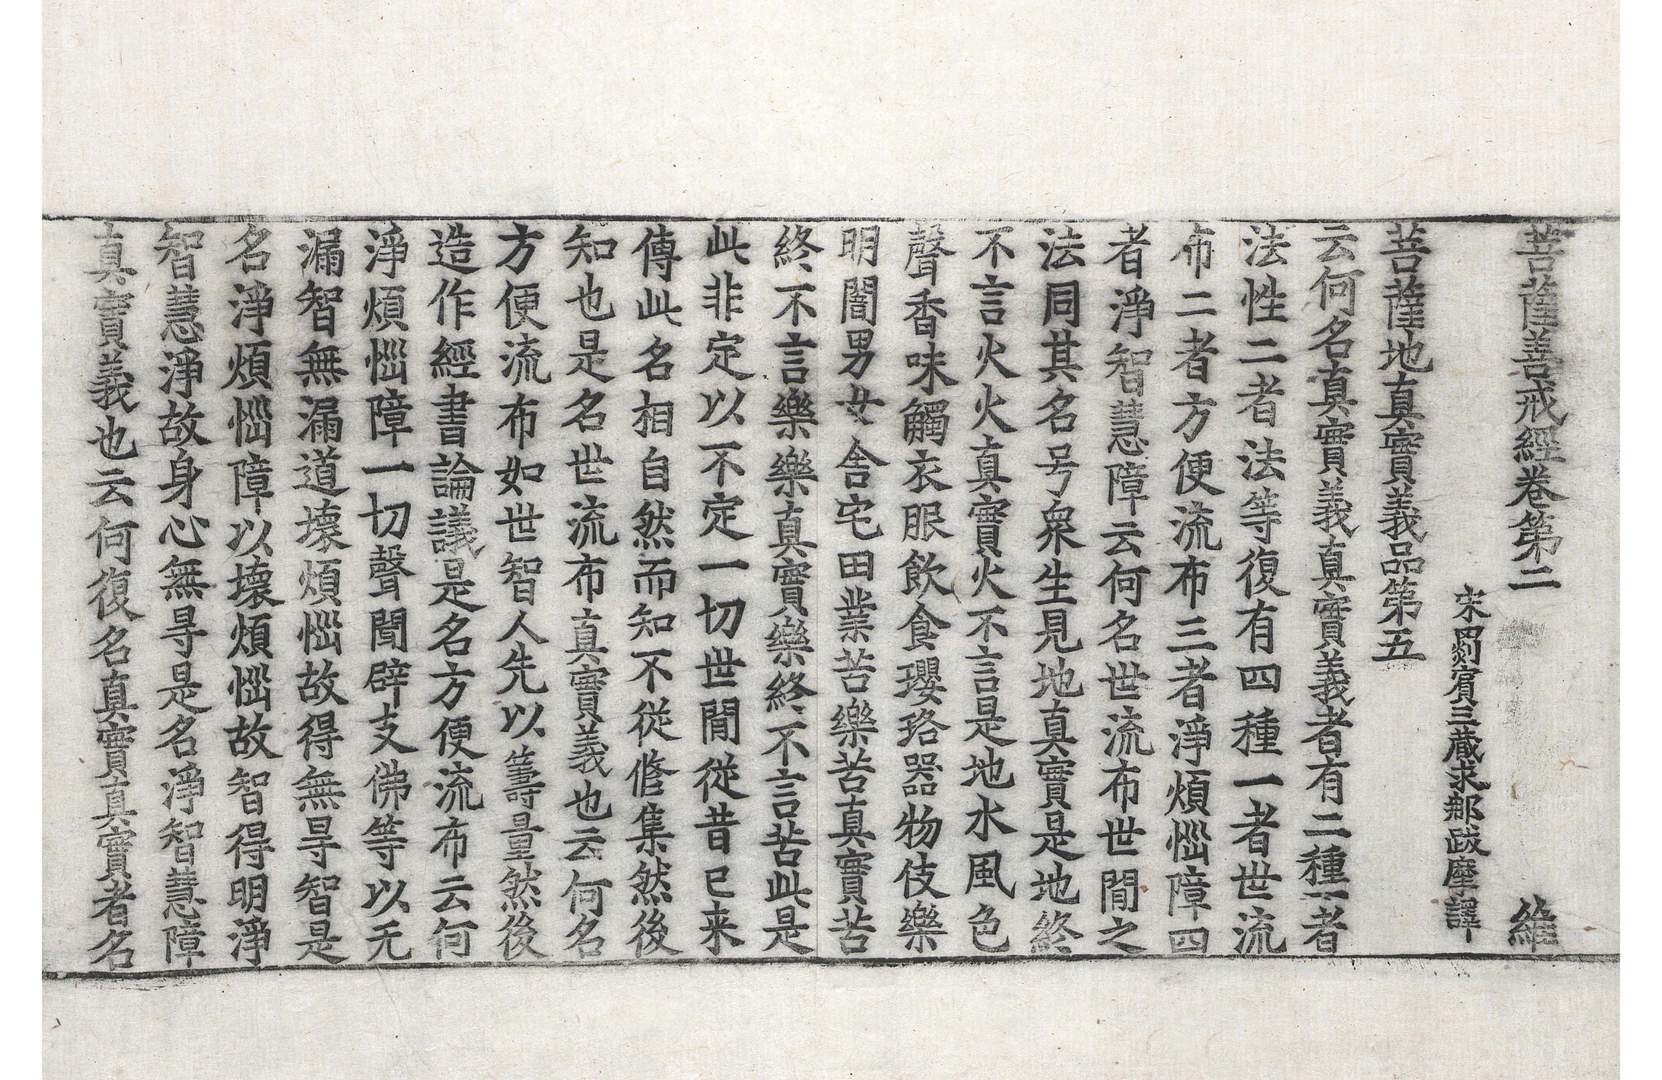 菩薩善戒經卷第二　維
宋罽賓三藏求那跋摩譯
菩薩地真實義品第五
云何名真實義真實義者有二種一者
法性二者法等復有四種一者世流
布二者方便流布三者淨煩惱障四
者淨智慧障云何名世流布世間之
法同其名号衆生見地真實是地終
不言火火真實火不言是地水風色
聲香味觸衣服飲食瓔珞器物伎樂
明闇男女舍宅田業苦樂苦真實苦
終不言樂樂真實樂終不言苦此是
此非定以不定一切世間從昔已来
傳此名相自然而知不從修集然後
知也是名世流布真實義也云何名
方便流布如世智人先以籌量然後
造作經書論議是名方便流布云何
淨煩惱障一切聲聞辟支佛等以无
漏智無漏道壞煩惱故得無㝵智是
名淨煩惱障以壞煩惱故智得明淨
智慧淨故身心無㝵是名淨智慧障
真實義也云何復名真實真實者名